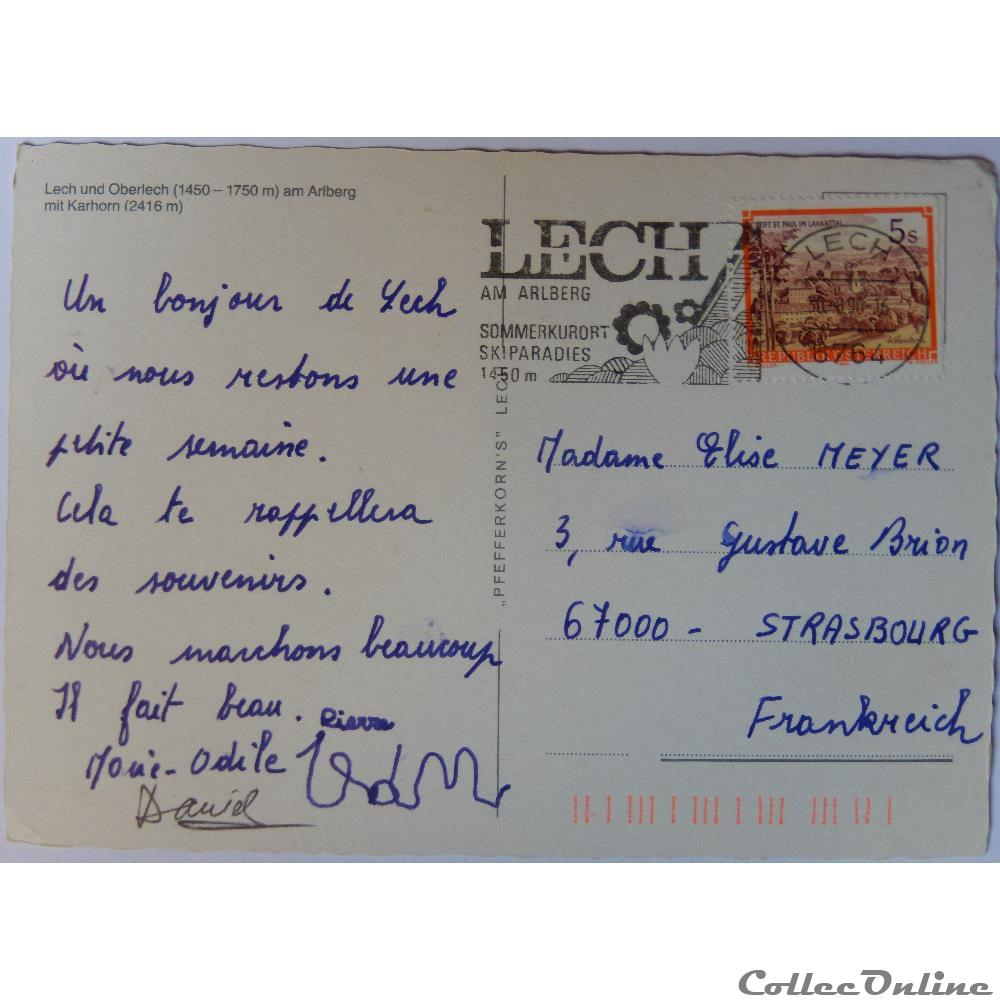 Lech und Oberlech (1450 – 1750 m) am Arlberg
mit Karhorn (2416 m)
Un bonjour de Lech
où nous restons une
petite semaine.
Cela te rappellera
des souvenirs.
Nous marchons beaucoup
Il fait beau.
Pierre
Marie-Odile
David
„PFEFFERKORN'S" LECH
LECH
AM ARLBERG
SOMMERKURORT
SKIPARADIES
1450 m
STIFT ST. PAUL IM LAVANTTAL
5s
REPUBLIK ÖSTERREICH
LECH
6764
Madame Elise MEYER
3, rue Gustave Brion
67000 - STRASBOURG
Frankreich
CollecOnline